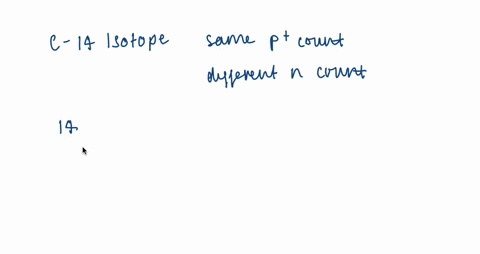 C-14 Isotope same p⁺ count
different n count
14